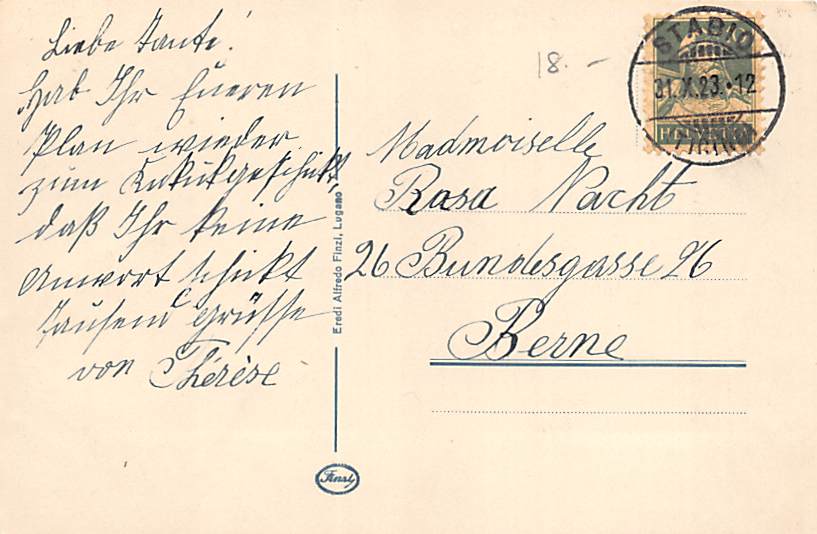 Liebe Tante!
Hab Ihr Eueren
Plan wieder
zum Kukuk geschikt,
daß Ihr keine
Anwort schikt
Tausend Grüsse
von Thérèse
Eredi Alfredo Finzi, Lugano
Finzi
18.-
STABIO
31.X.23.-12
HELVETIA
Mademoiselle
Rosa Nacht
26 Bundesgasse 26
Berne